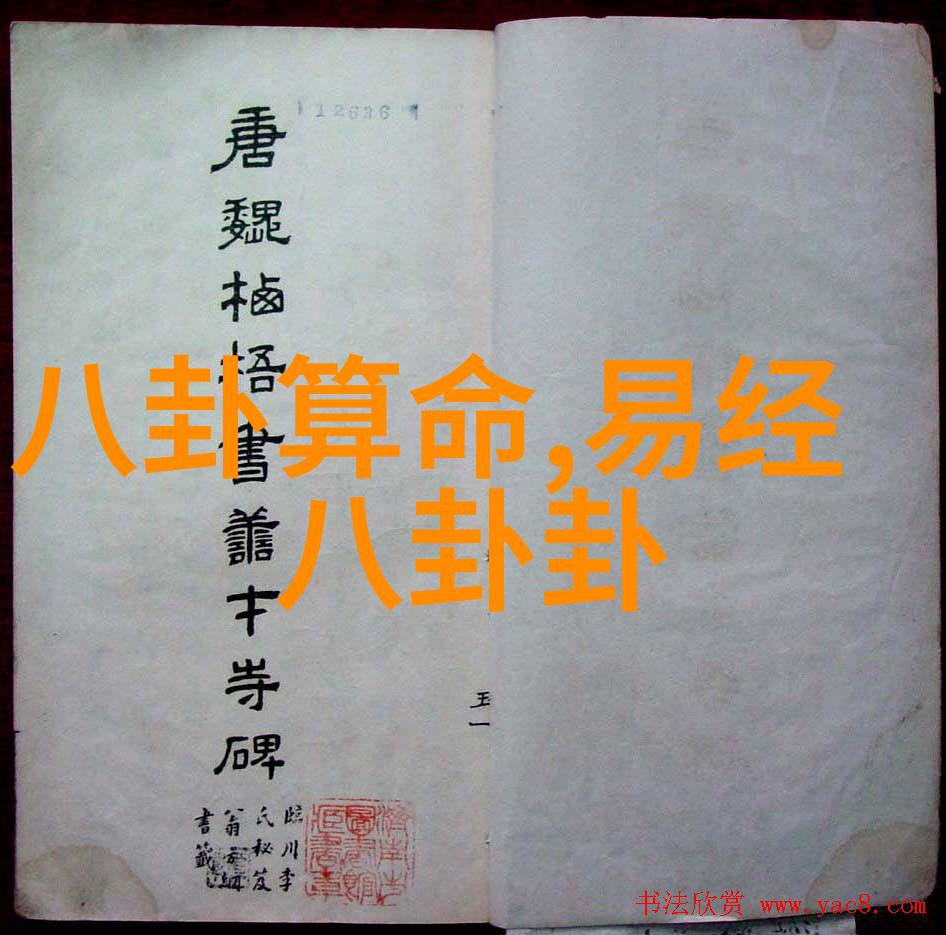 12636
唐魏栖梧書善才寺碑
八卦算命,易经
八卦卦
王一
臨川李
氏秘笈
翁方綱
書籤
书法欣赏 www.yac8.com